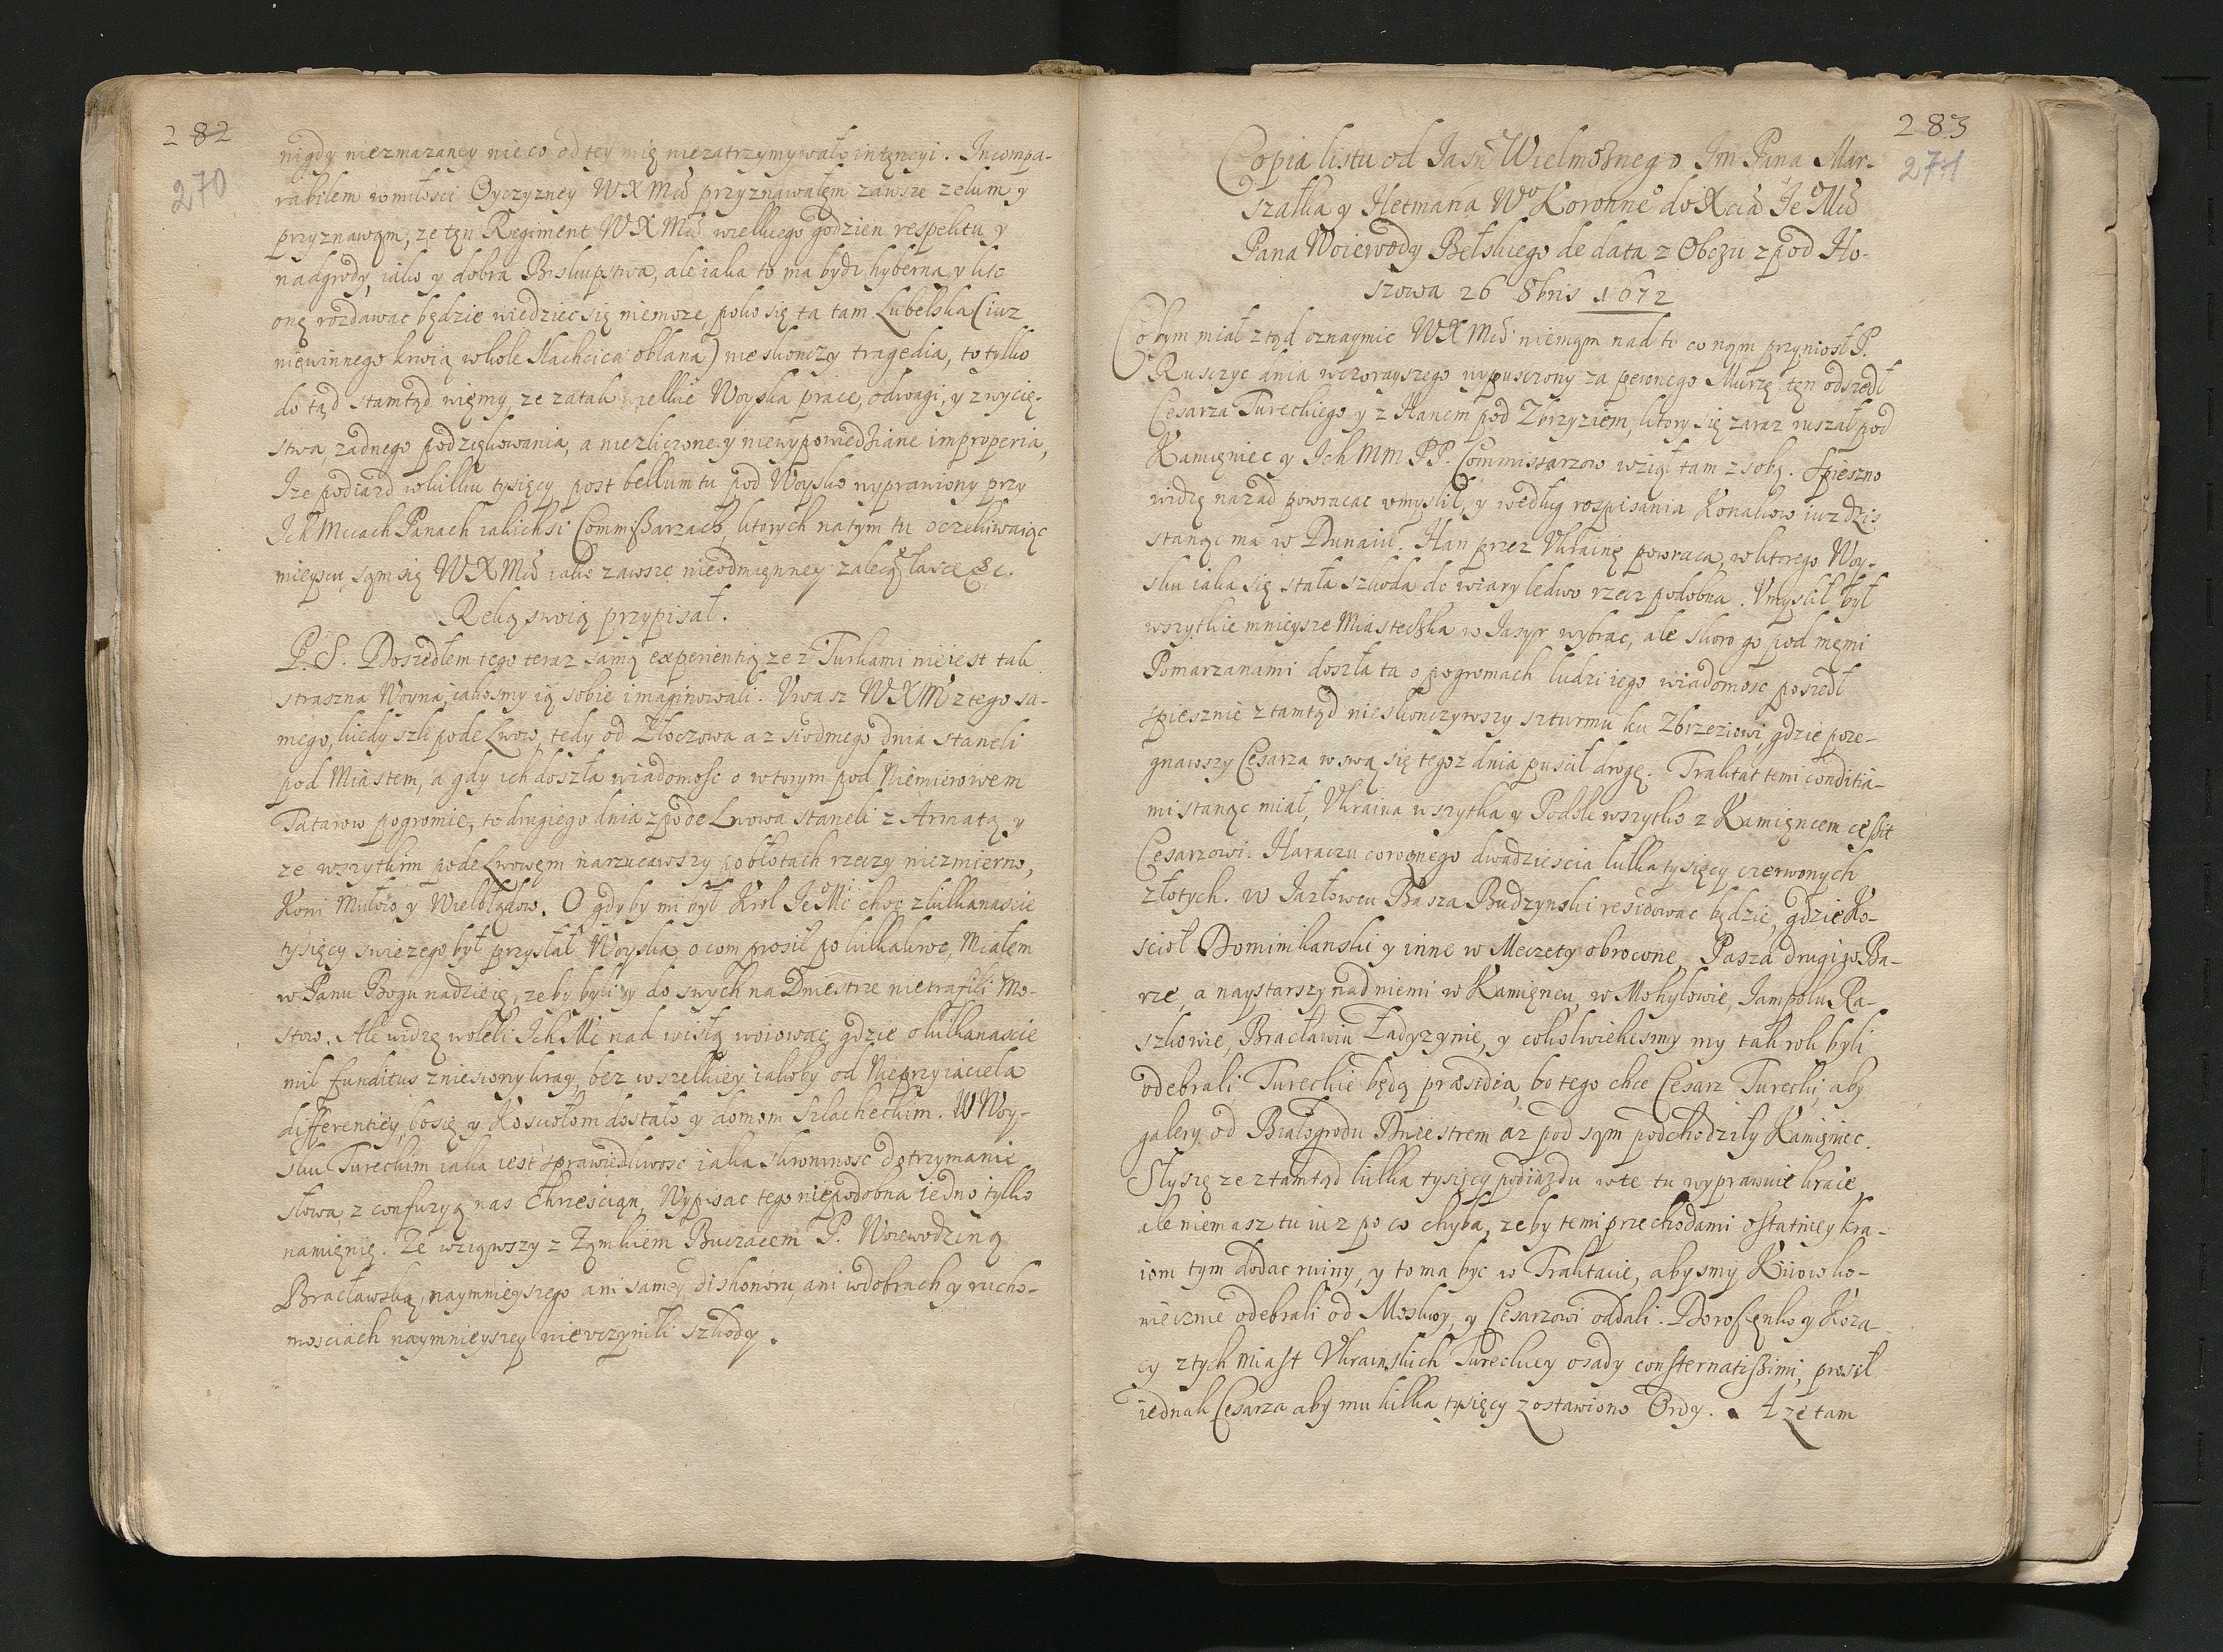 282
270
nigdy niezmazaney nieco od tey mię niezatrzymywało intęncyi. Incompa-
rabilem w miłosci Oyczyzney WXMśći przyznawałęm zawsze zelum y
przyznawąm, ze tęn Regiment WXMśći wielkiego godzien respektu y
nadgrody, iako y dobra Biskupstwa, ale iaka to ma bydz hyberna, y kto
onę rozdawac będzie wiedziec się niemoze, poko się ta tam Lubelska (iuz
niewinnego krwią wkole slachcica oblana) nie skonczy tragedia, to tylko
do tąd stamtąd więmy ze za tak wielkie Woyska prace, odwagi, y zwycię-
stwa, zadnego podzękowania, a niezliczone y niewypowiedziane improperia,
I ze podiazd w kilku tysięcy post bellum tu pod Woysko wyprawiony przy
Ich Mciach Panach iakichsi Commißarzach, ktorych na tym tu oczekiwaiąc
mieyscu, sąm się WXMśći iako zawsze nieodmięnney zalecą łasce &c.
Ręką swoią przypisał.
P. S. Doszedłem tego teraz samą experientią ze z Turkami nieiest tak
straszna Woyna, iakosmy ią sobie imaginowali. Uwasz WXM z tego sa-
mego, kiedy szli pode Lwow, tedy od Złoczowa az siodmego dnia staneli
pod Miastem, a gdy ich doszła wiadomosc o wtorym pod Niemierowem
Tatarow pogromie, to drugiego dnia z pode Lwowa staneli z Armatą y
ze wszytkim pode Lwowęm narzucawszy po błotach rzeczy niezmierno,
Koni Mułow y Wielbłądow. O gdyby mi był Krol JeMć choc z kilkanascie
tysięcy swiezego był przysłał Woyska, o com prosił po kilkakroc, Miałem
w Panu Bogu nadzieię, ze by byli y do swych na Dniestrze nie trafili Mo-
stow. Ale widzę woleli Ich Mć nad wisłą woiowac, gdzie o kilkanascie
mil funditus zniesiony kray, bez wszelkiey iakoby od Nieprzyiaciela
differentiey, bo się y Kosciołom dostało y domom Szlacheckim. W Woy-
sku Tureckim iaka iest sprawiedliwosc iaka skromnosc dotrzymanie
słowa, z confuzyą nas Chrzescian, Wypisac tego niepodobna iedno tylko
namięnię. Ze wziąwszy z Ząmkiem Buczacem P. Woiewodziną
Bracławską, naymnieyszego ani samey dishonoru, ani w dobrach y rucho-
mosciach naymnieyszey nieuczynili szkody.
283
271
Copia listu od Jasń Wielmoznego Jm Pana Mar-
szałka y Hetmana Wo Koronne do Xcia JeMśći
Pana Woiewody Bełskiego de data z Obozu z pod Ho-
szowa 26 8bris 1672
Co bym miał z tąd oznaymic WXMśći niemąm nad to co nąm przyniosł P.
Rusczyc dnia wczorayszego wypusczony za pewnego Murzę, tęn odszedł
Cesarza Tureckiego y z Hanem pod Zbrzyziem, ktory się zaraz ruszał pod
Kamięniec y Ich MM PP. Commissarzow wziął tam z sobą. Spieszno
widzę nazad powracac umyslił, y według rospisania Konakow iuz dzis
stanąc ma w Dunaiu. Han przez Ukrainę powraca, w ktorego Woy-
sku iaka się stała szkoda do wiary ledwo rzecz podobna. Umyslił był
wszytkie mnieysze Miasteczka w Jasyr wybrac, ale skoro go pod memi
Pomarzanami doszła ta o pogromach ludzi iego wiadomosc poszedł
spiesznie z tamtąd nieskonczywszy szturmu ku Zbrzeziowi, gdzie poze-
gnawszy Cesarza w swą się tegoz dnia puscił drogę. Traktat temi conditia-
mi stanąc miał, Ukraina wszytka y Podole wszytko z Kamięncem ceßit
Cesarzowi. Haraczu corocznego dwadziescia kilka tysięcy czerwonych
złotych. w Jazłowcu Basza Budzynski residowac będzie, gdzie Ko-
scioł Dominikanski y inne w Meczety obrocone, Pasza drugi w Ba-
rze, a naystarszy nad niemi w Kamięncu, w Mohylowie, Jampolu Ra-
szkowie, Bracławiu Ładyzynie, y cokolwiekesmy my tak rok byli
odebrali, Tureckie będą præsidia, bo tego chce Cesarz Turecki, aby
galery od Białogrodu Dniestrem az pod sąm podchodziły Kamięniec.
Słyszę ze z tamtąd kilka tysięcy podiazdu w te tu wyprawuie kraie,
ale niemasz tu iuz po co chyba, zeby temi przechodami ostatniey kra-
iom tym dodac ruiny, y to ma byc w Traktacie, abysmy Kiiow ko-
niecznie odebrali od Moskwy, y Cesarzowi oddali. Doroszęnko y Koza-
cy z tych Miast Ukrainskich Tureckiey osady consternatißimi, prosił
iednak Cesarza aby mu kilka tysięcy zostawiono Ordy. A ze tam